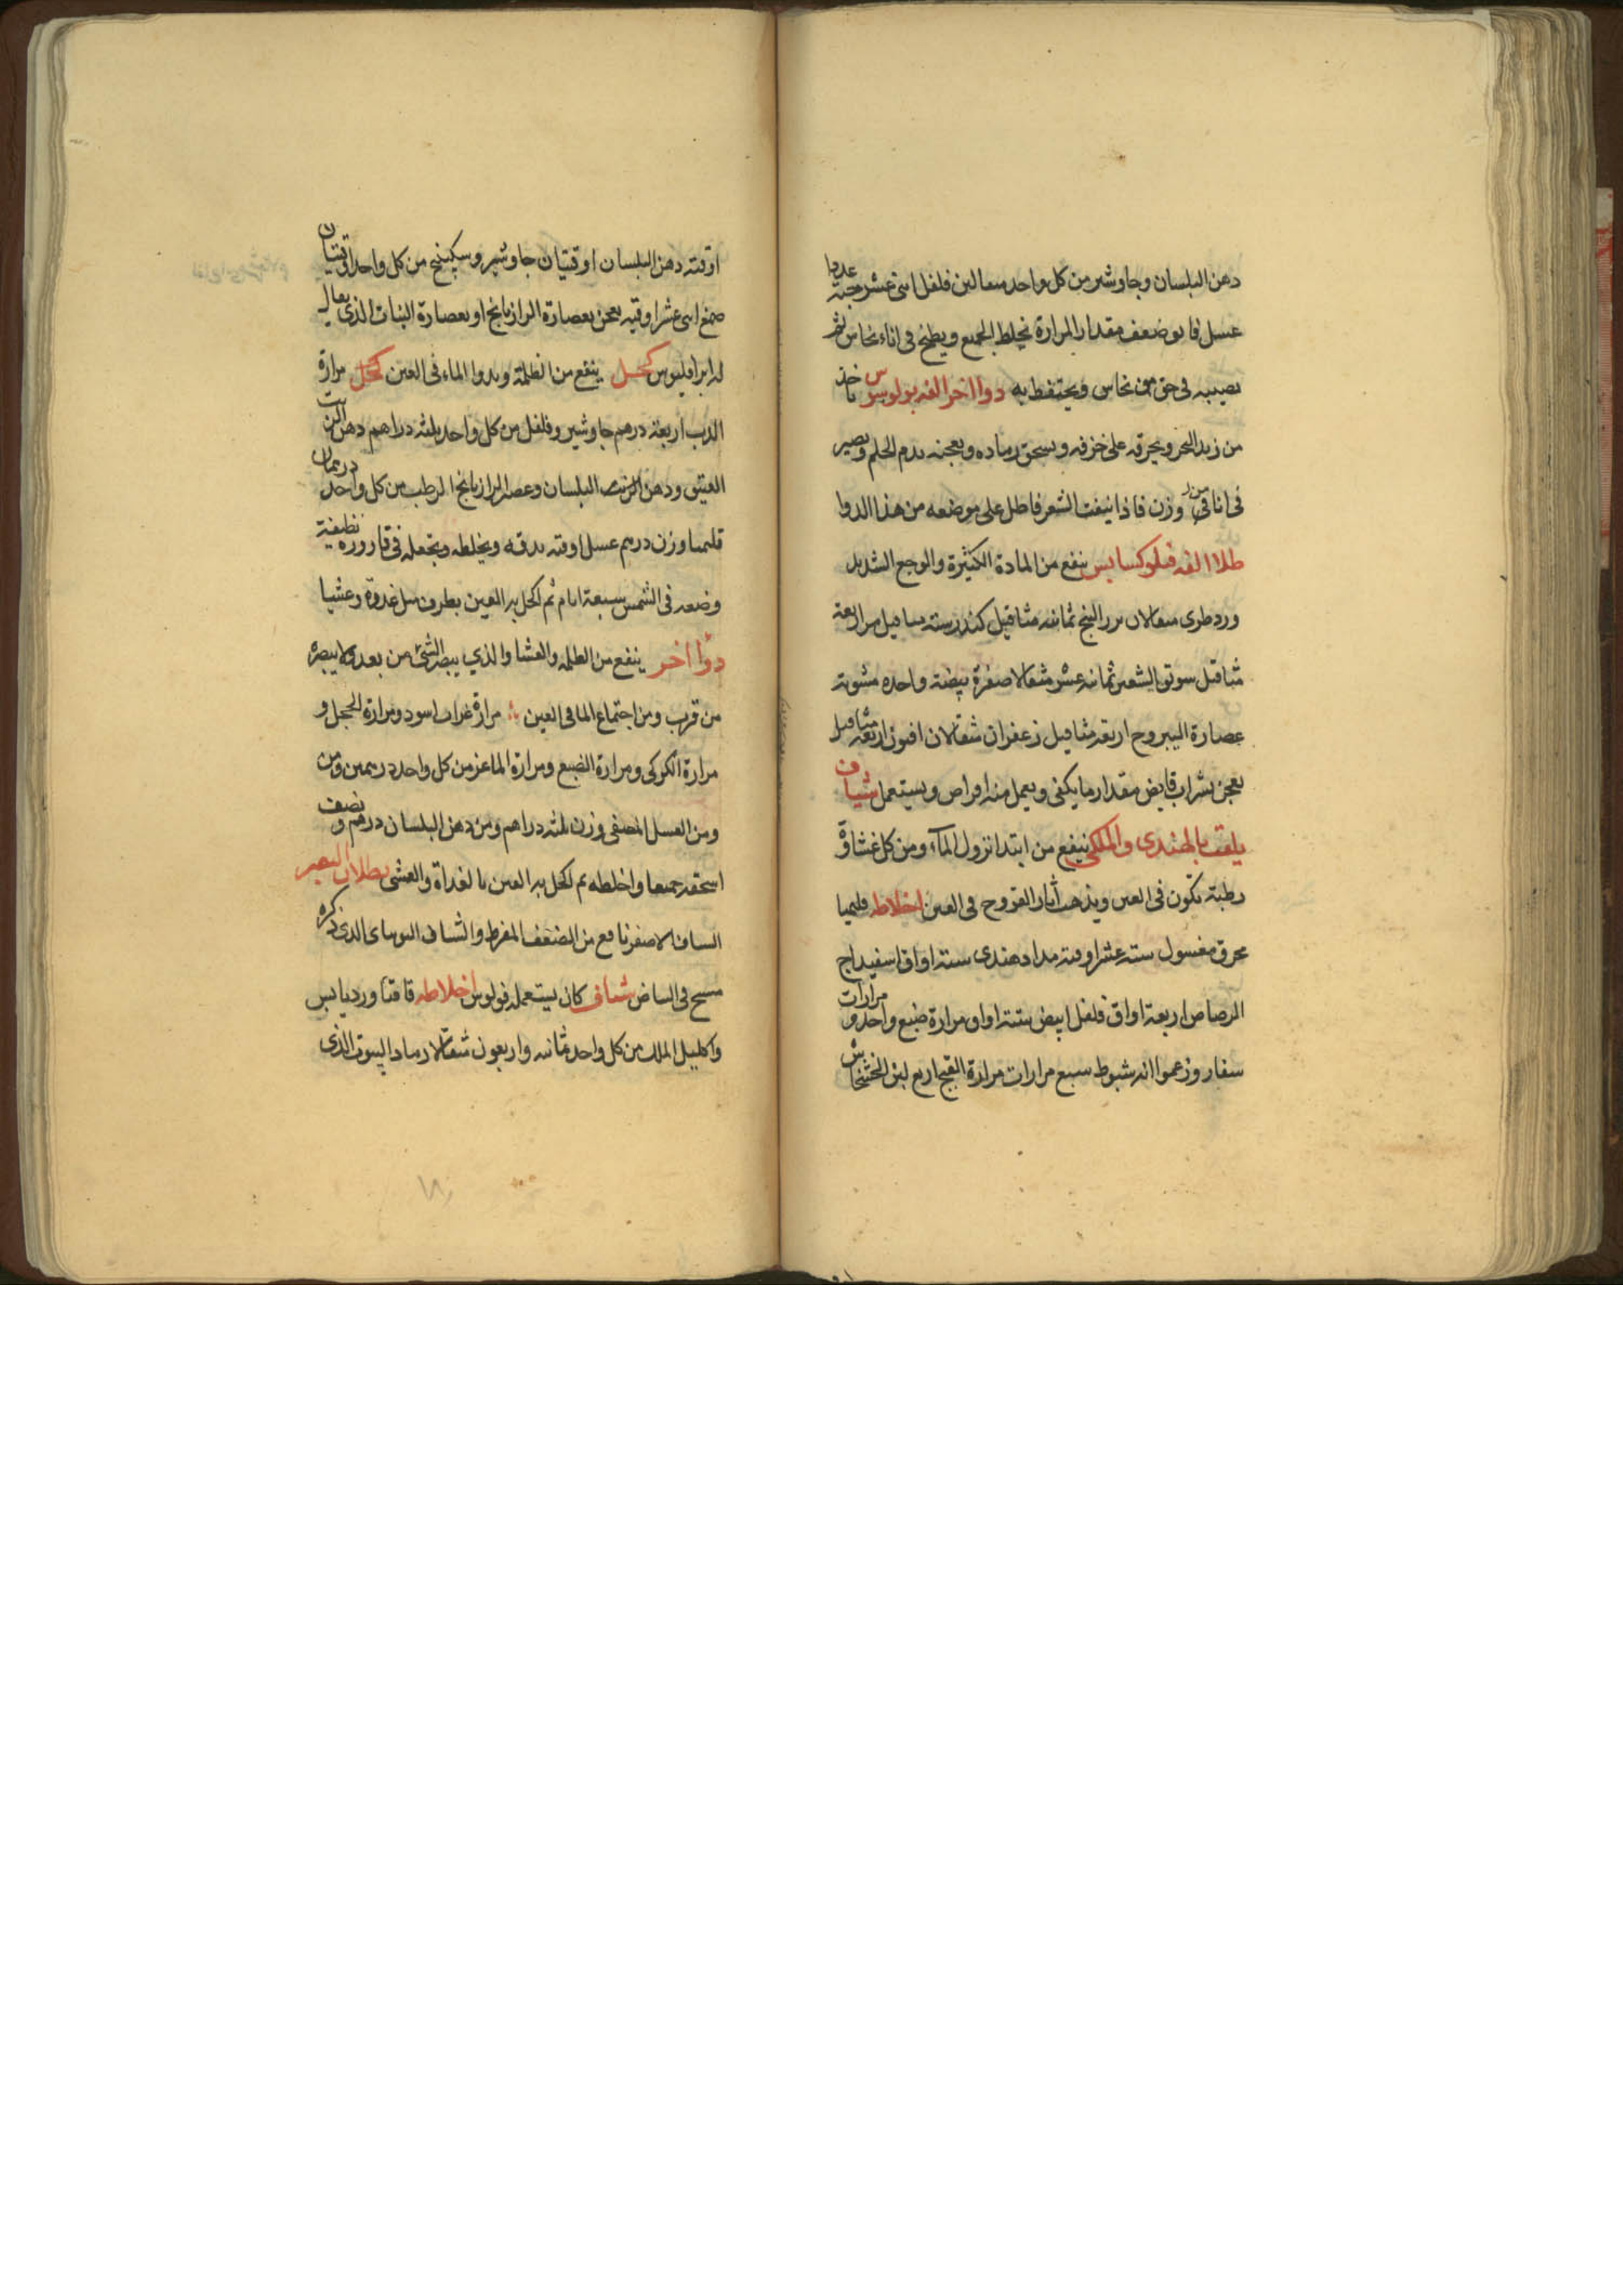 دهن البلسان وجاوشير من كل واحد مثقالين فلفل اثنى عشر حبة عددا
عسل فايق ضعف مقدار المرارة يخلط الجميع ويطبخ فى اناء نحاس ثم
يصيبه فى حق من نحاس ويحتفظ به دوا اخر الفه بولوس تاخذ
من زبد البحر ويحرقه على خزفه ويسحق رماده ويعجنه بدم الحلم ويصير
فى انا وزن فاذا نتفت الشعر فاطل على موضعه من هذا الدوا
طلا الفه فيلوكسانس ينفع من المادة الكثيرة والوجع الشديد
ورد طرى مثقالان بزر البنج ثمانية مثاقيل كندر ستة مثاقيل مر اربعة
مثاقيل سويق الشعير ثمانية عشر مثقالا صفرة بيضة واحدة مشوية
عصارة اليبروح اربعة مثاقيل زعفران مثقالان افيون اربعة مثاقيل
يعجن بشراب قابض مقدار ما يكفى ويعمل منه اقراص ويستعمل شياف
يلقب بالهندى والملكى ينفع من ابتدا نزول المآء ومن كل غشاوة
رطبة تكون فى العين ويذهب آثار القروح فى العين اخلاطه قليميا
محرق مغسول ستة عشر اوقية مداد هندى ستة اواق اسفيداج
الرصاص اربعة اواق فلفل ابيض ستة اواق مرارة ضبع واحد ومرارات
سفار وزعموا انه شبوط سبع مرارات مرارة القبج اربع لبن الخشخاش
اوقية دهن البلسان اوقيتان جاوشير وسكبينج من كل واحد اوقيتان
صمغ اثنى عشر اوقيه يعجن بعصارة الرازيانج او بعصارة النبات الذى يقال
له ابراقليوس كحل ينفع من الظلمة وبدوا الماء فى العين كحل مرارة
الدب اربعة درهم جاوشير وفلفل من كل واحد ثلثة دراهم دهن الزيت
العتيق ودهن البلسان وعصير الرازيانج الرطب من كل واحد درهمان
قليميا وزن درهم عسل اوقية يدقه ويخلطه ويجعله فى قارورة نظيفة
وضعه فى الشمس سبعة ايام ثم اكحل به العين بطرف ميل غدوة وعشيا
دوآ اخر ينفع من الظلمه والعشا والذي يبصر الشئ من بعد ولا يبصره
من قرب ومن اجتماع الما فى العين مرارة غراب اسود ومرارة الحجل و
مرارة الكركى ومرارة الضبع ومرارة الماعز من كل واحد درهمين ومن
ومن العسل المصفى وزن ثلثة دراهم ومن دهن البلسان درهم ونصف
اسحقه جميعا واخلطه ثم اكحل به العين بالغداة والعشى بطلان البصر
الشياف الاصفر نافع من الضعف المفرط والشياف الذى ذكره
مسيح فى البياض شياف كان يستعمله فولوس اخلاطه قاقيا ورد يابس
واكليل الملك من كل واحد ثمانية واربعون مثقالا رماد البيوت الذى